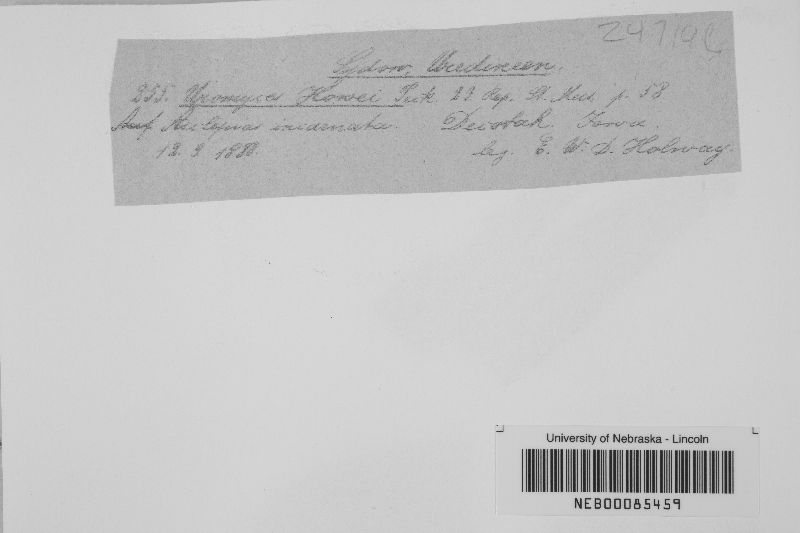 247196
Sydow, Uredineen.
255. Uromyces Howei Peck 27. Rep. St. Mus. p. 58
Auf Asclepias incarnata. Decorah Iowa.
12. 9 1886. leg. E. W. D. Holway.
University of Nebraska - Lincoln
NEB00085459